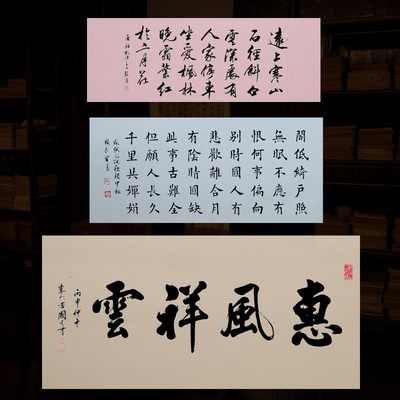 遠上寒山
石徑斜白
雲深處有
人家停車
坐愛楓林
晚霜葉紅
於二月花
閣低綺戶照
無眠不應有
恨何事偏向
別時圓人有
悲歡離合月
有陰晴圓缺
此事古難全
但願人長久
千里共嬋娟
惠風祥雲